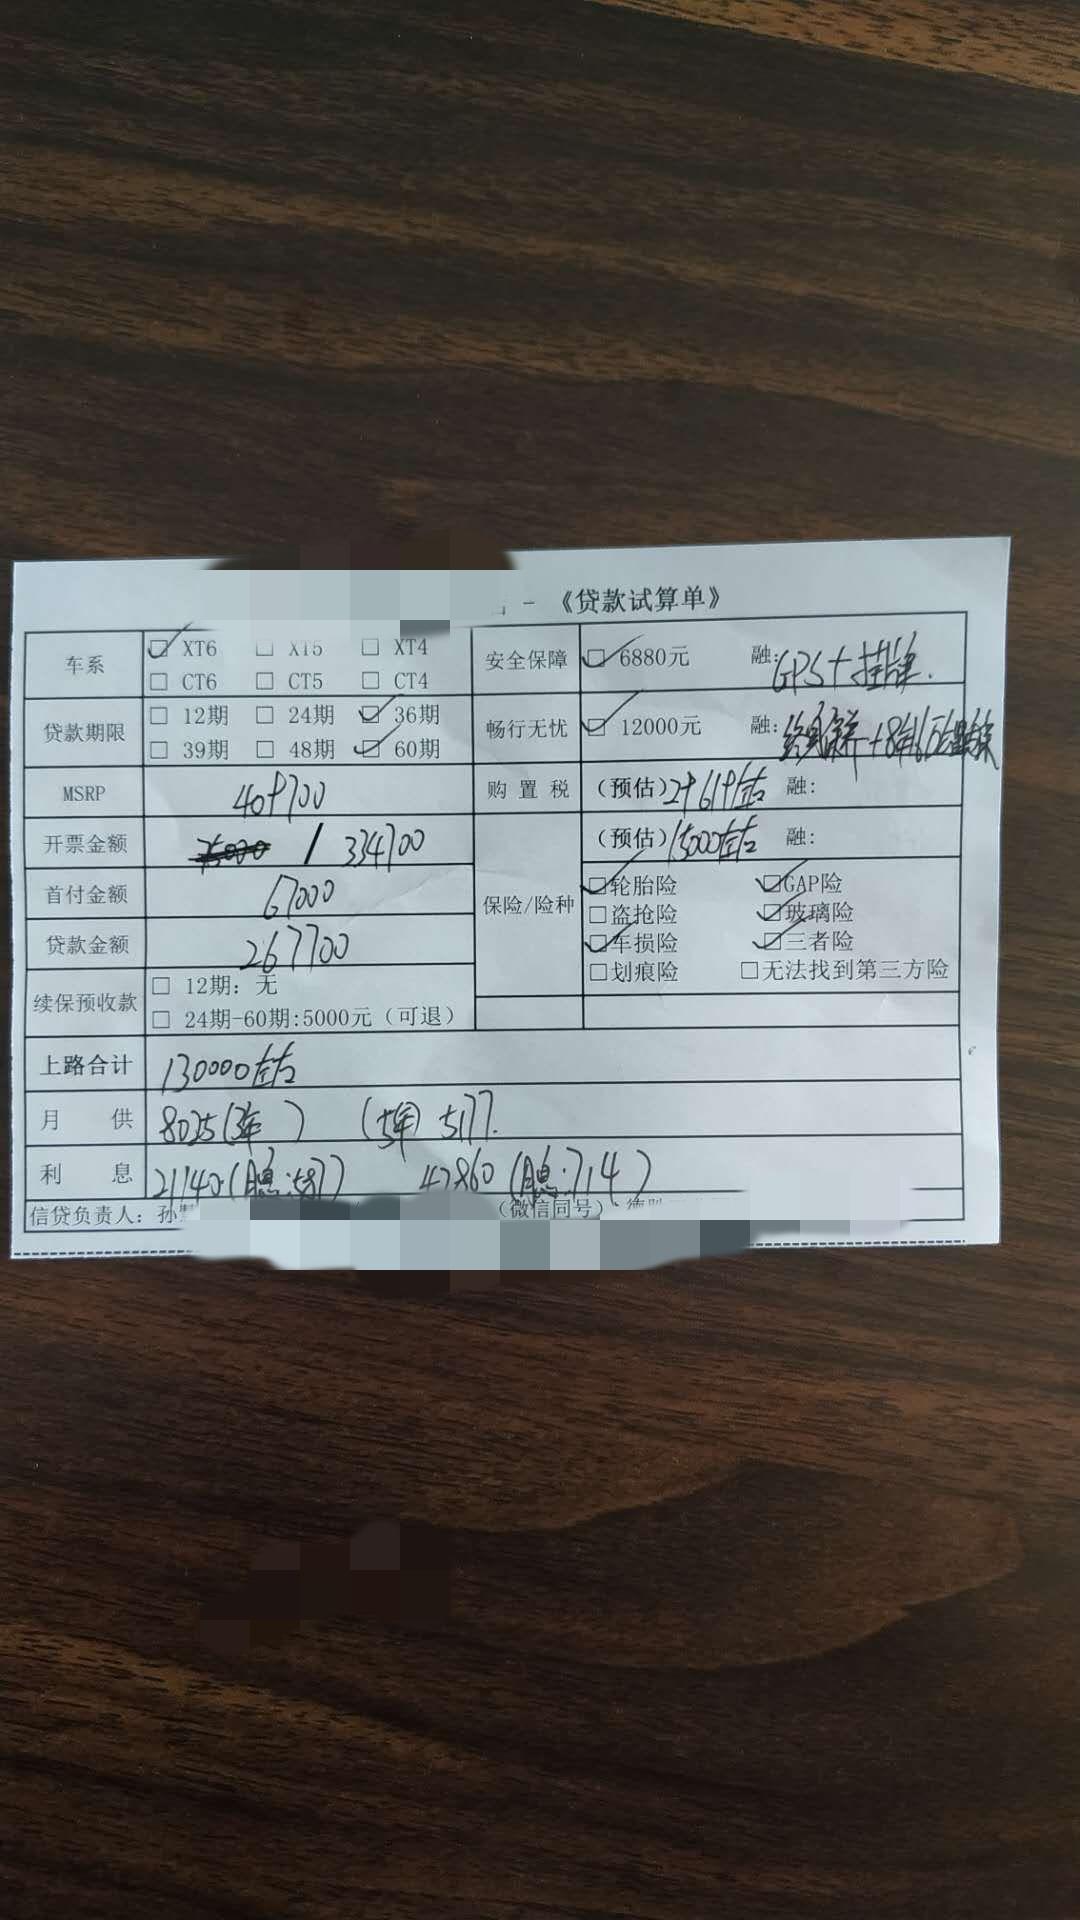 - 《贷款试算单》
车系 ☑ XT6 □ XT5 □ XT4
□ CT6 □ CT5 □ CT4
安全保障 ☑ 6880元 融: GPS+挂牌.
贷款期限 □ 12期 □ 24期 ☑ 36期
□ 39期 □ 48期 ☑ 60期
畅行无忧 ☑ 12000元 融: 终身保养+8年16万
MSRP 409700
购置税 (预估) 29619左右 融:
开票金额 75000 / 334700
(预估) 15000左右 融:
首付金额 67000
贷款金额 267700
保险/险种 ☑轮胎险 ☑GAP险
□盗抢险 ☑玻璃险
☑车损险 ☑三者险
□划痕险 □无法找到第三方险
续保预收款 □ 12期: 无
□ 24期-60期:5000元(可退)
上路合计 130000左右
月供 8025(3年) (5年) 5177.
利息 21140.(月息:587) 42860 (月息:714)
信贷负责人: 孙
(微信同号)